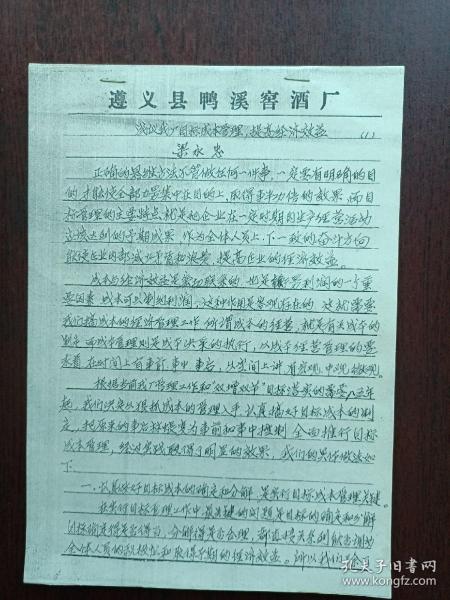 遵义县鸭溪窖酒厂
浅议我厂目标成本管理,提高经济效益 (1)
梁永忠
正确的思维方法不管做任何一件事,一定要有明确的目
的,才能使全部力量集中在目的上,取得事半功倍的效果。而目
标管理的主要特点就是把企业在一定时期内生产经营活动
应该达到的予期成果,作为全体人员上、下一致的奋斗方向
能使企业内部减少矛盾和浪费,提高企业的经济效益。
成本与经济效益是密切联系的,也是利润的一个重
要因素,成本可以制约利润,这种作用是客观存在的,这就需要
我们搞成本的经济管理工作,所谓成本的经营,就是有关成本的
成本管理则是成本决策的执行,从成本经营管理的
来看,在时间上有事前、事中、事后,从空间上讲,有宏观、中观、微观。
根据当前我厂管理工作和“双增双节”目标落实的需要,八五年
起,我们决定从狠抓成本的管理入手,认真搞好目标成本的制
定,把原来的事后核算变为事前和事中控制,全面推行目标
成本管理,经过实践取得了明显的效果,我们的具体做法如
下:
一、认真做好目标成本的确定和分解,是实行目标成本管理关键。
在实行目标管理工作中,最关键的问题是目标的确定和分解
目标确定得是否得当,分解得是否合理,都直接关系到能否调动
全体人员的积极性和取得予期的经济效益。所以我们
孔夫子旧书网